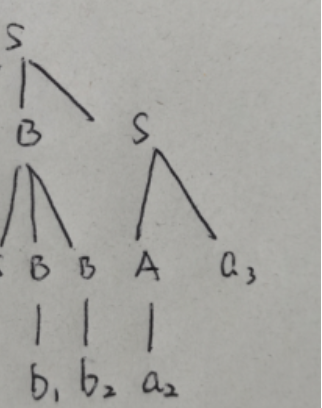 S
B S
B B A a₃
b₁ b₂ a₂